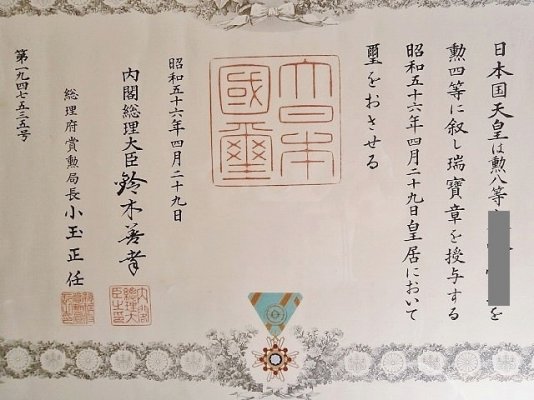 日本国天皇は勲八等を
勲四等に叙し瑞寶章を授与する
昭和五十六年四月二十九日皇居において
璽をおさせる
大日本國璽
昭和五十六年四月二十九日
内閣総理大臣鈴木善幸
内閣総理大臣之印
総理府賞勲局長小玉正任
第一九四七五三五号